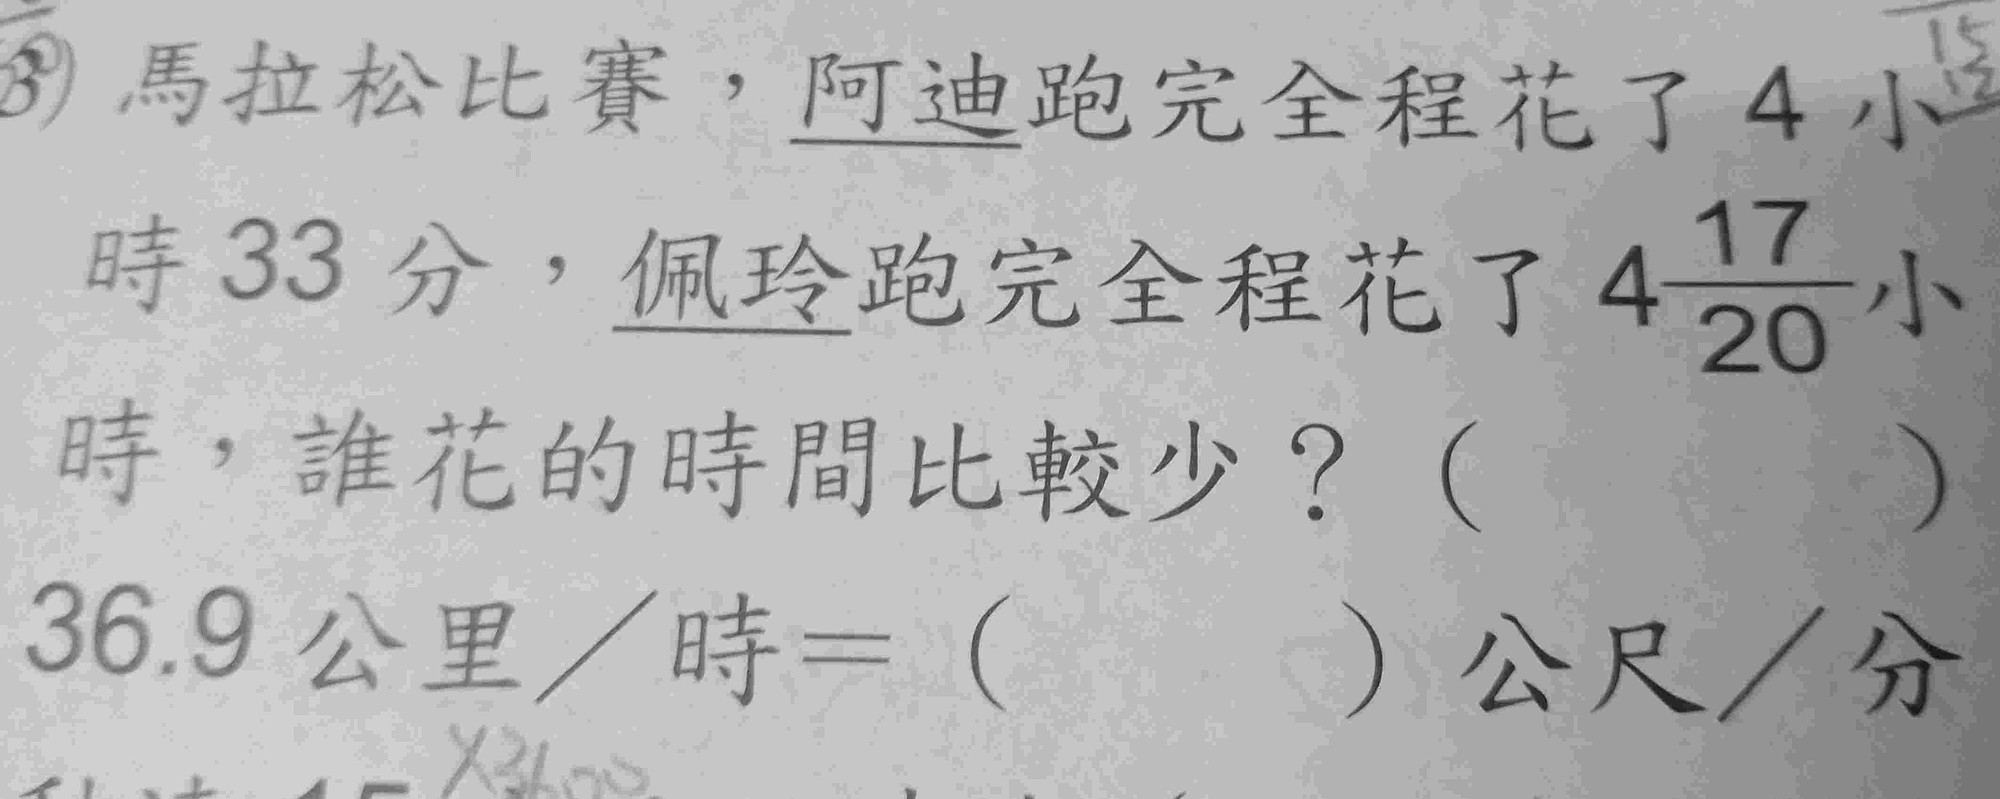 (3) 馬拉松比賽，阿迪跑完全程花了 4 小
時 33 分，佩玲跑完全程花了 4 17/20 小
時，誰花的時間比較少？（　　）
36.9 公里／時＝（　　）公尺／分
×3600